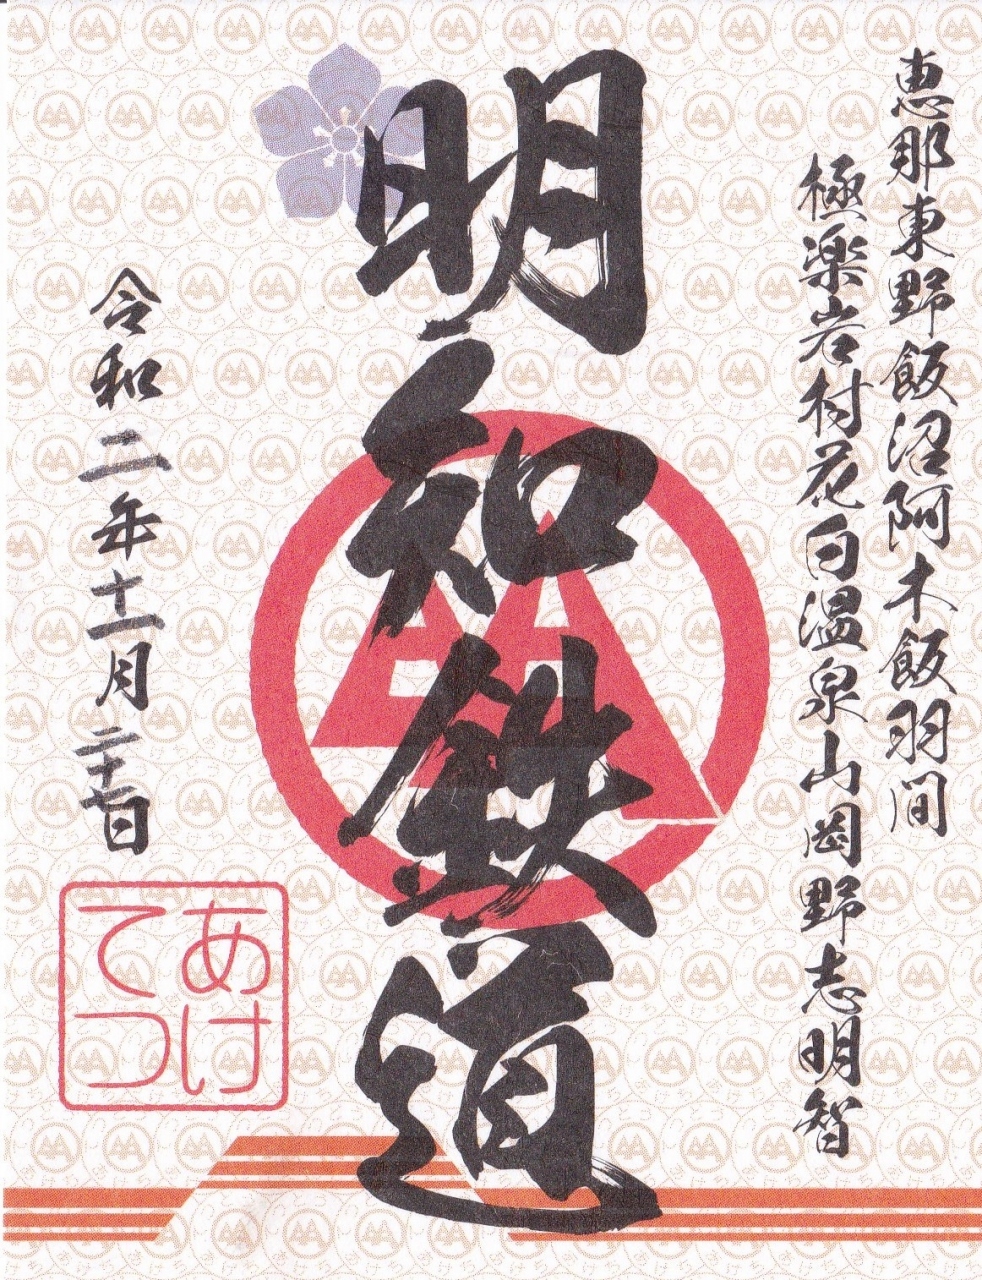 恵那東野飯沼阿木飯羽間
極楽岩村花白温泉山岡野志明智
明知鉄道
令和二年十一月二十七日
あけ
てつ